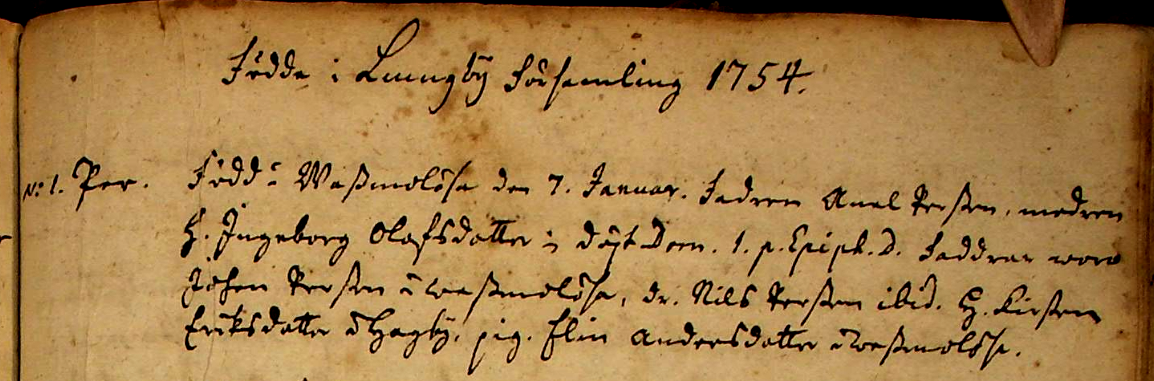 Födde i Liungby Församling 1754.
N:o 1. Per. Född i Waßmolösa den 7. Januar. Fadren Axel Persßon, modren
H. Ingeborg Olofsdotter; döpt Dom. 1. p. Epiph. D. Faddrar woro
Johan Persßon i waßmolösa, dr. Nils Persßon ibid. H. Kirsten
Eriksdotter i Hagby, pig. Elin Andersdotter i waßmolösa.